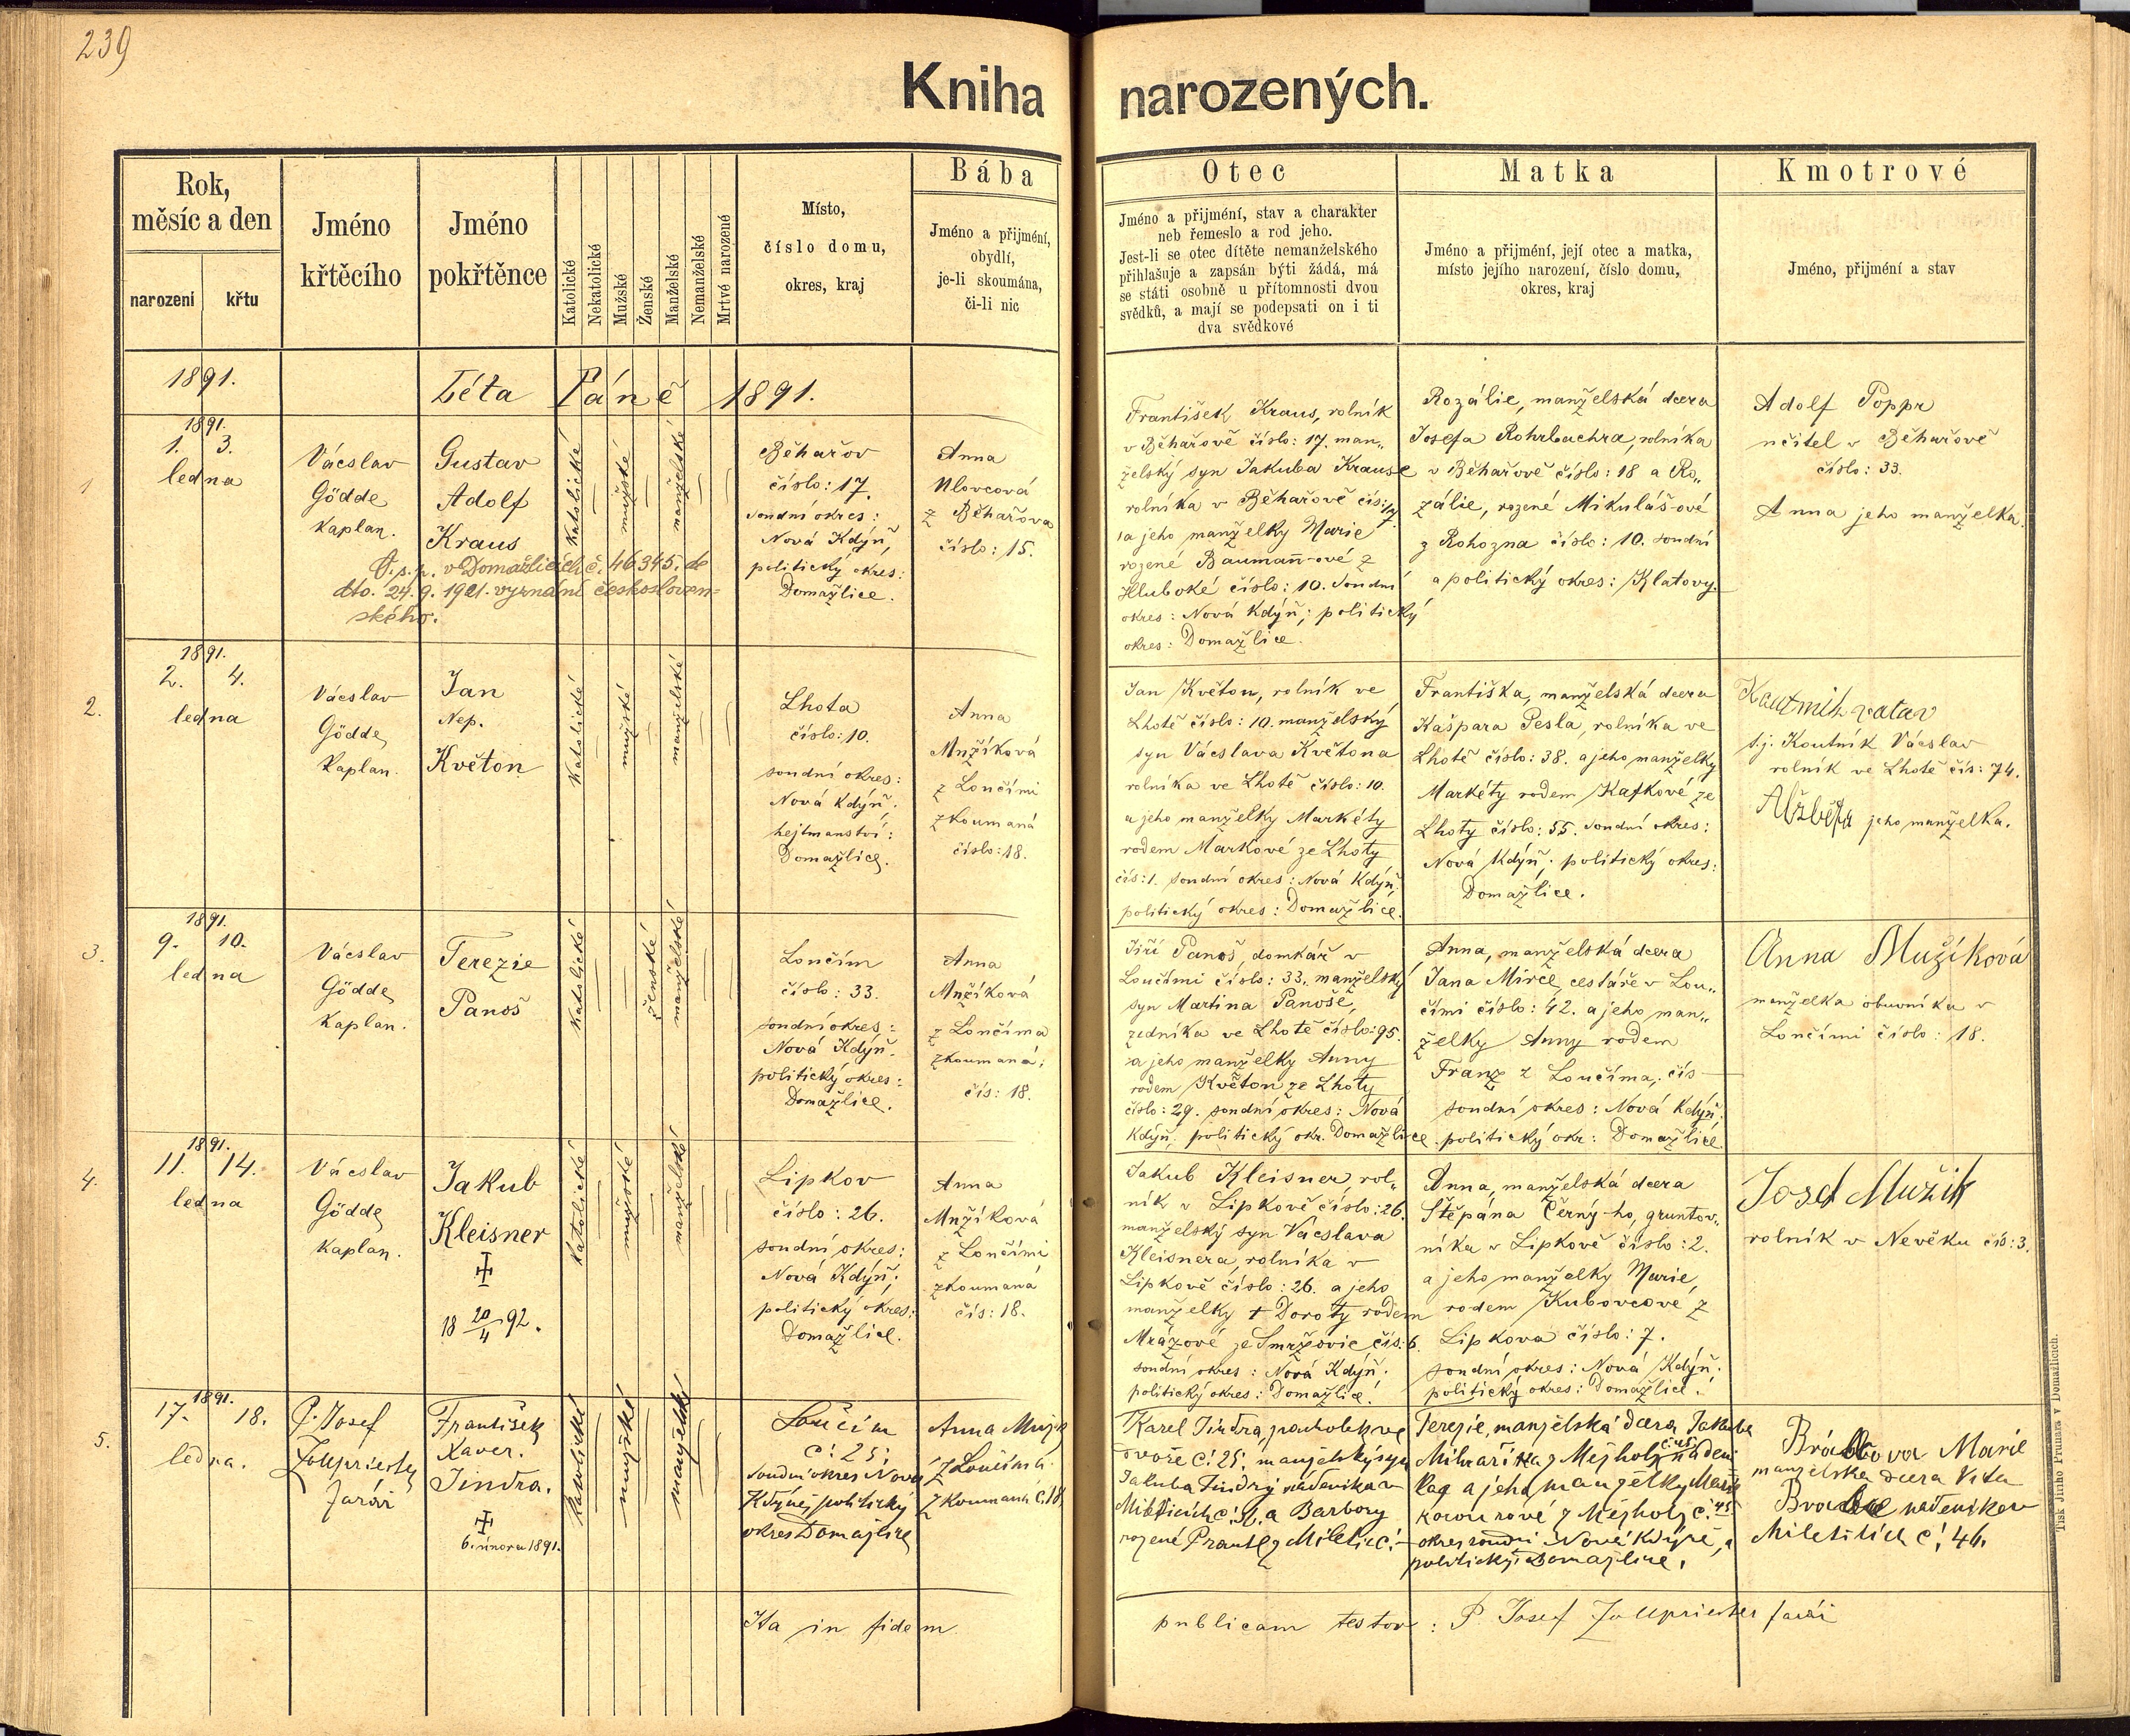 239
Kniha narozených.
Rok,
měsíc a den
narození
křtu
Jméno
křtěcího
Jméno
pokřtěnce
Katolické
Nekatolické
Mužské
Ženské
Manželské
Nemanželské
Mrtvé narozené
Místo,
číslo domu,
okres, kraj
Bába
Jméno a přijmění,
obydlí,
je-li skoumána,
či-li nic
Otec
Jméno a přijmění, stav a charakter
neb řemeslo a rod jeho.
Jest-li se otec dítěte nemanželského
přihlašuje a zapsán býti žádá, má
se státi osobně u přítomnosti dvou
svědků, a mají se podepsati on i ti
dva svědkové
Matka
Jméno a přijmění, její otec a matka,
místo jejího narození, číslo domu,
okres, kraj
Kmotrové
Jméno, přijmění a stav
1891.
Léta Páně 1891.
1
1891.
1. 3.
ledna
Vácslav
Gödde
Kaplan.
Gustav
Adolf
Kraus
O.s.p. v Domažlicích č. 46345. de
dto. 24.9.1921. vyznání českosloven=
ského.
Katolické
mužské
manželské
Běhařov
číslo: 17.
soudní okres:
Nová Kdýň,
politický okres:
Domažlice.
Anna
Ulovcová
z Běhařova
číslo: 15.
František Kraus, rolník
v Běhařově číslo: 17. man„
želský syn Jakuba Krause
rolníka v Běhařově čís: 17
a jeho manželky Marie
rozené Baumann-ové z
Hluboké číslo: 10. soudní
okres: Nová Kdýň; politický
okres: Domažlice.
Rozálie, manželská dcera
Josefa Rohrbachra, rolníka
v Běhařově číslo: 18 a Ro„
zálie, rozené Mikuláš-ové
z Rohozna číslo: 10. soudní
a politický okres: Klatovy.
Adolf Poppr
učitel v Běhařově
číslo: 33.
Anna jeho manželka.
2.
1891.
2. 4.
ledna
Vácslav
Gödde
Kaplan.
Jan
Nep.
Květon
Katolické
mužské
manželské
Lhota
číslo: 10.
soudní okres:
Nová Kdýň,
hejtmanství:
Domažlice.
Anna
Mužíková
z Loučími
zkoumaná
číslo: 18.
Jan Květon, rolník ve
Lhotě číslo: 10. manželský
syn Vácslava Květona
rolníka ve Lhotě číslo: 10.
a jeho manželky Markéty
rodem Markové ze Lhoty
čís: 1. soudní okres: Nová Kdýň,
politický okres: Domažlice.
Františka, manželská dcera
Kašpara Pesla, rolníka ve
Lhotě číslo: 38. a jeho manželky
Markéty rodem Kafkové ze
Lhoty číslo: 55. soudní okres:
Nová Kdýň; politický okres:
Domažlice.
t.j. Koutník Vácslav
rolník ve Lhotě čís: 74.
Alžběta jeho manželka.
3.
1891.
9. 10.
ledna
Vácslav
Gödde
Kaplan.
Terezie
Panoš
Katolické
ženské
manželské
Loučím
číslo: 33.
soudní okres:
Nová Kdýň.
politický okres:
Domažlice.
Anna
Mužíková
z Loučíma
zkoumaná;
čís: 18.
Jiří Panoš, domkář v
Loučími číslo: 33. manželský
syn Martina Panoše,
zedníka ve Lhotě číslo: 95.
a jeho manželky Anny
rodem Květon ze Lhoty
číslo: 29. soudní okres: Nová
Kdýň, politický okr. Domažlice.
Anna, manželská dcera
Jana Mirce, cestáře v Lou„
čími číslo: 42. a jeho man„
želky Anny rodem
Franz z Loučíma, čís —
soudní okres: Nová Kdýň;
politický okr: Domažlice.
Anna Mužíková
manželka obuvníka v
Loučími číslo: 18.
4.
1891.
11. 14.
ledna
Vácslav
Gödde
Kaplan.
Jakub
Kleisner
18 20/4 92.
Katolické
mužské
manželské
Lipkov
číslo: 26.
soudní okres:
Nová Kdýň;
politický okres:
Domažlice.
Anna
Mužíková
z Loučími
zkoumaná
čís: 18.
Jakub Kleisner, rol„
ník v Lipkově číslo: 26.
manželský syn Vácslava
Kleisnera, rolníka v
Lipkově číslo: 26. a jeho
manželky † Doroty rodem
Mrázové ze Smržovic čís: 6.
soudní okres: Nová Kdýň.
politický okres: Domažlice.
Anna, manželská dcera
Štěpána Černý-ho, gruntov„
níka v Lipkově číslo: 2.
a jeho manželky Marie,
rodem Kubovcové z
Lipkova číslo: 7.
soudní okres: Nová Kdýň;
politický okres: Domažlice.
Josef Mužík
rolník v Nevěku čís: 3.
5.
1891.
17. 18.
ledna.
P. Josef
Zollpriester
farář
František
Xaver.
Jindra.
6. února 1891.
Katolické
mužské
manželské
Loučím
č: 25;
soudní okres Nová
Kdýně, politický
okres Domažlice
Anna Mužík
z Loučíma
zkoumaná č. 18
Karel Jindra, pacholek ve
Dvoře č: 25; manželský syn
Jakuba Jindry nádeníka v
a Barbory
rozené z Miletic č: —
Terezie, manželská dcera Jakuba
a jeho manželky Marie
z Mezholz č: 45
okres soudní Nová Kdýně, a
politický Domažlice.
Marie
manželská dcera Víta
nádeníka v
Mileticích č: 46.
Ita in fidem publicam testor: P. Josef Zollpriester farář
Tisk Jiřího Prunara v Domažlicích.